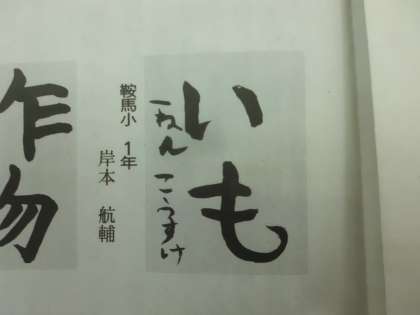 いも
一ねん こうすけ
鞍馬小 1年
岸本 航輔